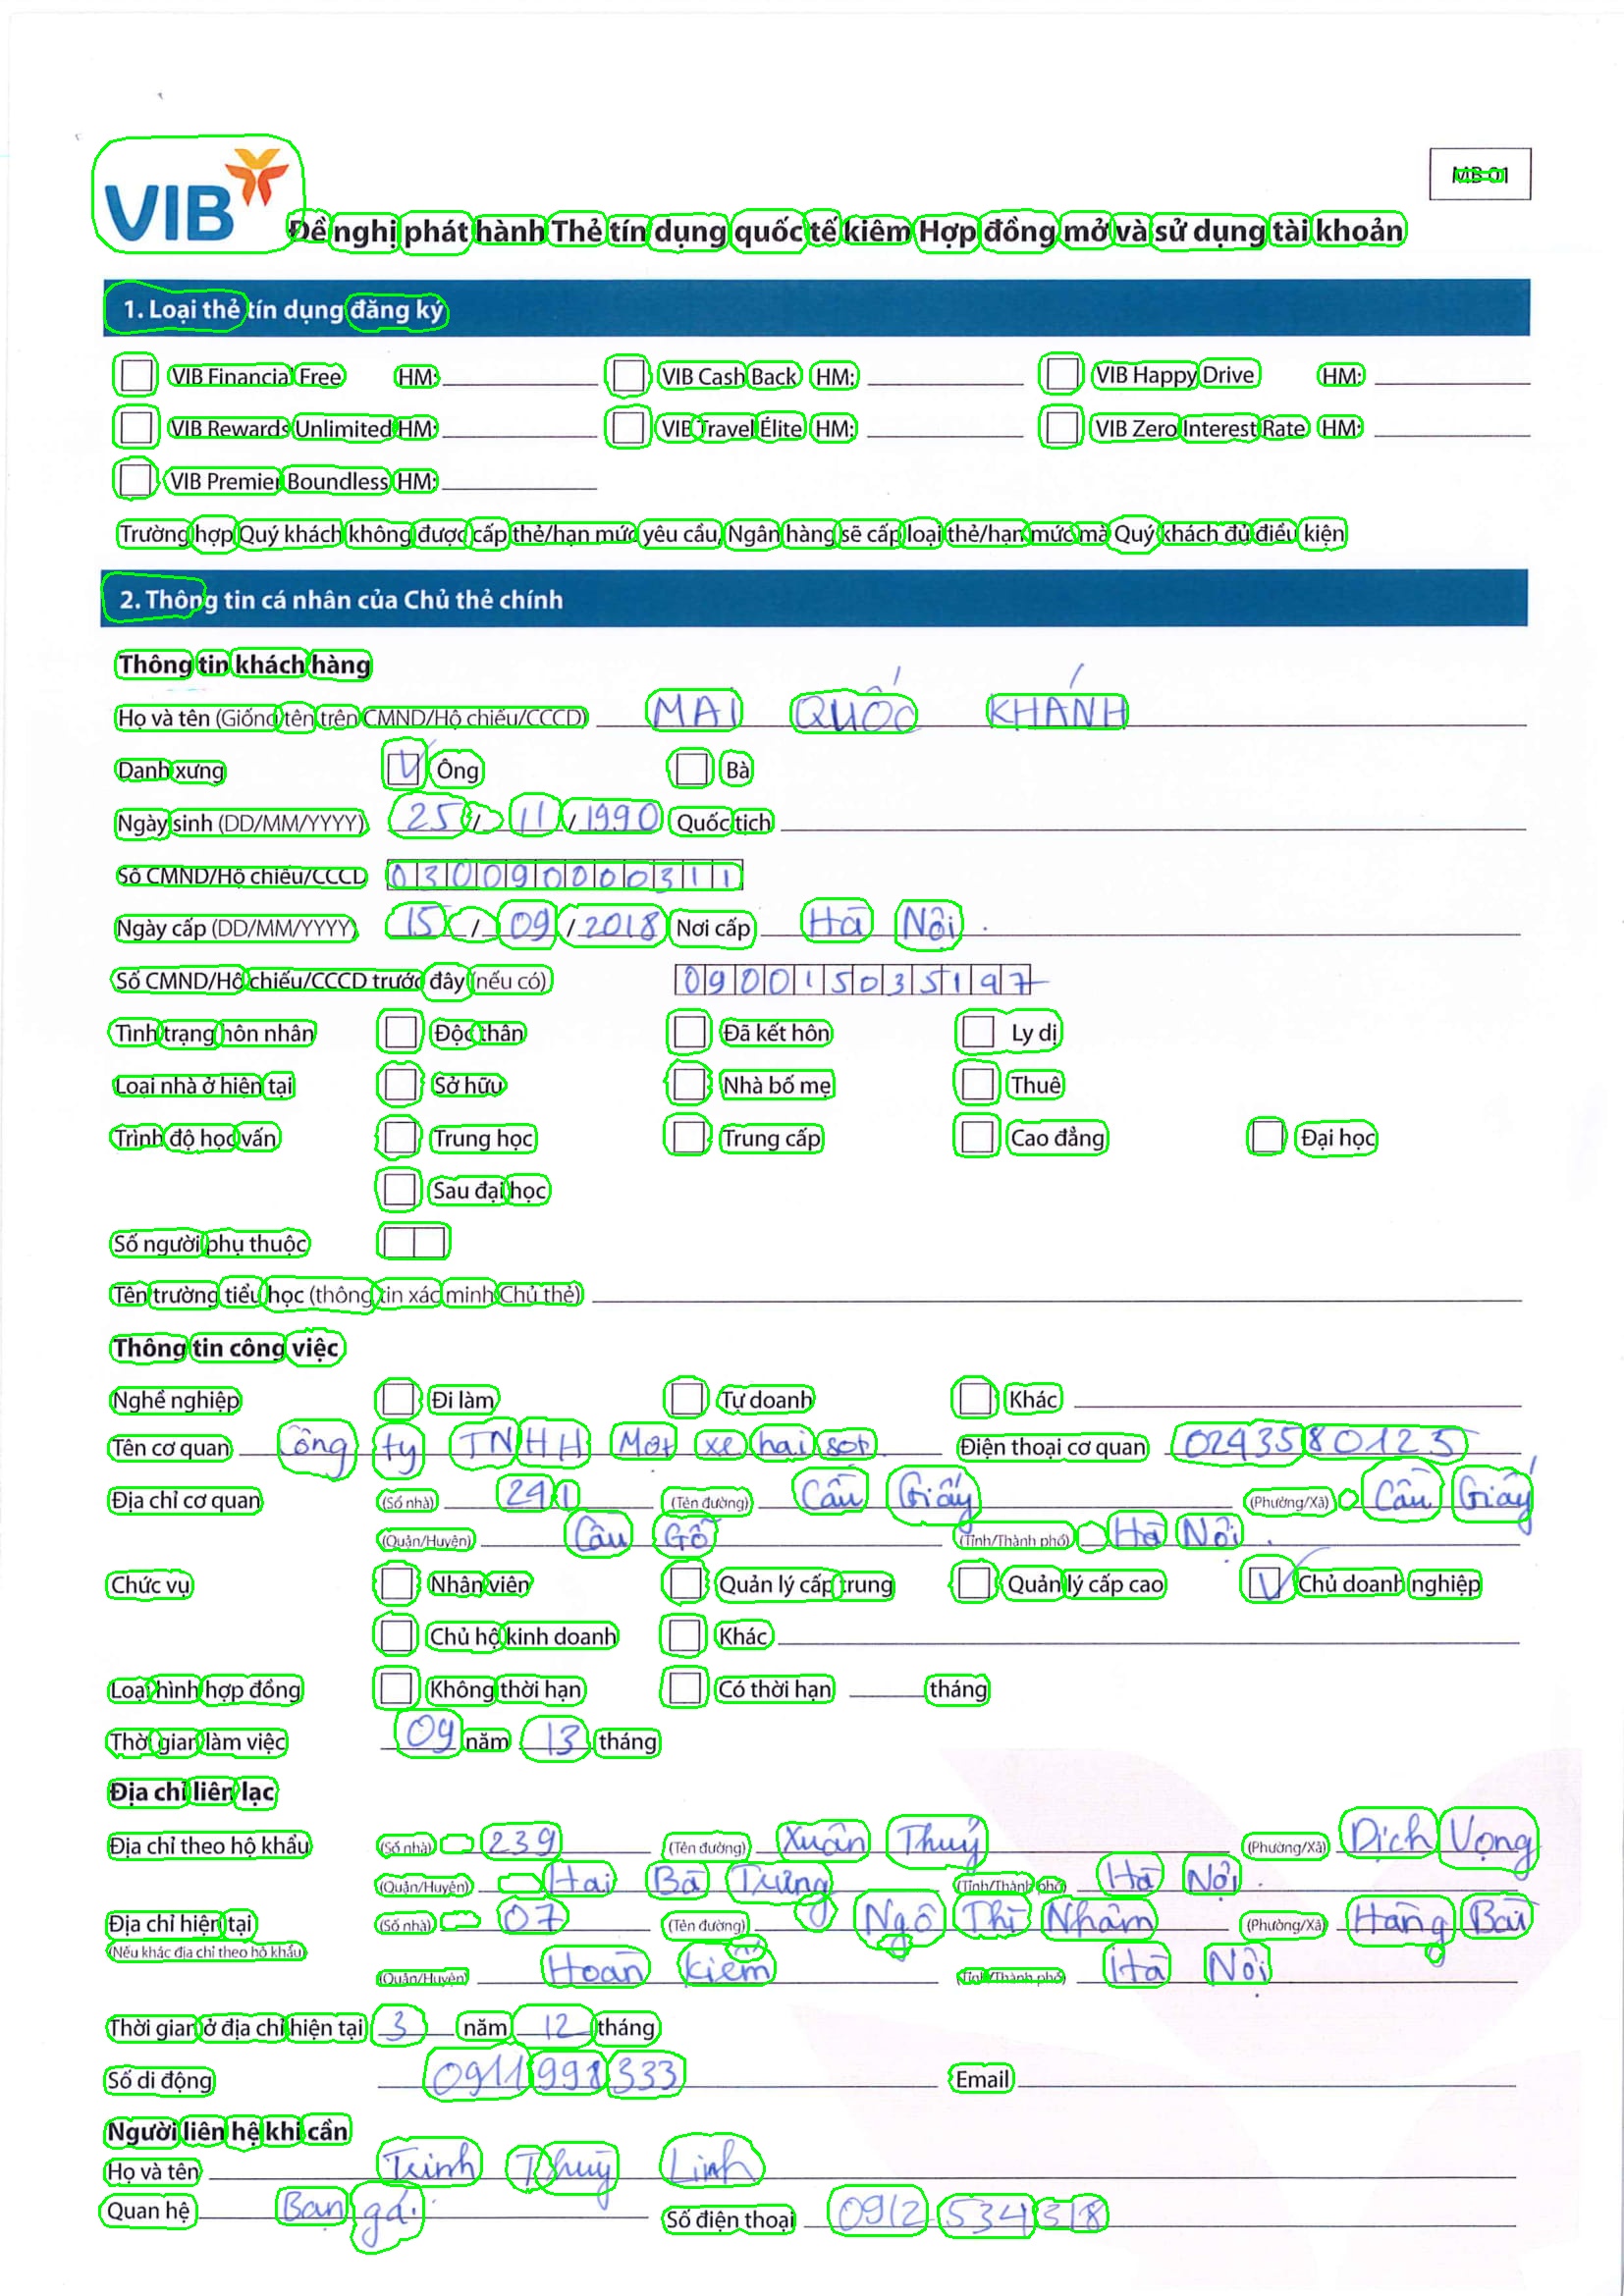 VIB
MB 01
Đề nghị phát hành Thẻ tín dụng quốc tế kiêm Hợp đồng mở và sử dụng tài khoản
1. Loại thẻ tín dụng đăng ký
VIB Financial Free HM: VIB Cash Back HM: VIB Happy Drive HM:
VIB Rewards Unlimited HM: VIB Travel Élite HM: VIB Zero Interest Rate HM:
VIB Premier Boundless HM:
Trường hợp Quý khách không được cấp thẻ/hạn mức yêu cầu, Ngân hàng sẽ cấp loại thẻ/hạn mức mà Quý khách đủ điều kiện
2. Thông tin cá nhân của Chủ thẻ chính
Thông tin khách hàng
Họ và tên (Giống tên trên CMND/Hộ chiếu/CCCD) MAI QUỐC KHÁNH
Danh xưng Ông Bà
Ngày sinh (DD/MM/YYYY) 25 / 11 / 1990 Quốc tịch
Số CMND/Hộ chiếu/CCCD 030090000311
Ngày cấp (DD/MM/YYYY) 15 / 09 / 2018 Nơi cấp Hà Nội.
Số CMND/Hộ chiếu/CCCD trước đây (nếu có) 090015035197
Tình trạng hôn nhân Độc thân Đã kết hôn Ly dị
Loại nhà ở hiện tại Sở hữu Nhà bố mẹ Thuê
Trình độ học vấn Trung học Trung cấp Cao đẳng Đại học
Sau đại học
Số người phụ thuộc
Tên trường tiểu học (thông tin xác minh Chủ thẻ)
Thông tin công việc
Nghề nghiệp Đi làm Tự doanh Khác
Tên cơ quan Công ty TNHH Một xe hai sọt Điện thoại cơ quan 02435801235
Địa chỉ cơ quan (Số nhà) 241 (Tên đường) Cầu Giấy (Phường/Xã) Cầu Giấy
(Quận/Huyện) Cầu Gỗ (Tỉnh/Thành phố) Hà Nội.
Chức vụ Nhân viên Quản lý cấp trung Quản lý cấp cao Chủ doanh nghiệp
Chủ hộ kinh doanh Khác
Loại hình hợp đồng Không thời hạn Có thời hạn tháng
Thời gian làm việc 09 năm 13 tháng
Địa chỉ liên lạc
Địa chỉ theo hộ khẩu (Số nhà) 239 (Tên đường) Xuân Thuỷ (Phường/Xã) Dịch Vọng
(Quận/Huyện) Hai Bà Trưng (Tỉnh/Thành phố) Hà Nội.
Địa chỉ hiện tại (Số nhà) 07 (Tên đường) Ngô Thì Nhậm (Phường/Xã) Hàng Bài
(Nếu khác địa chỉ theo hộ khẩu)
(Quận/Huyện) Hoàn Kiếm (Tỉnh/Thành phố) Hà Nội
Thời gian ở địa chỉ hiện tại 3 năm 12 tháng
Số di động 0911998333 Email
Người liên hệ khi cần
Họ và tên Trịnh Thuỳ Linh
Quan hệ Bạn gái Số điện thoại 0912 534318